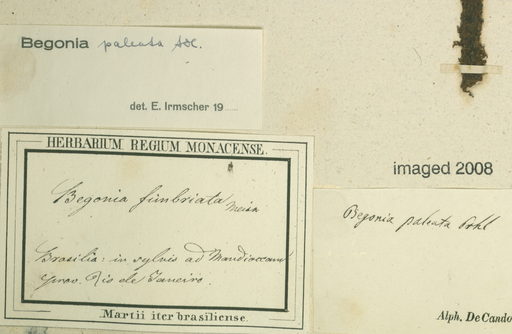 Begonia paleata ADC.
det. E. Irmscher 19
HERBARIUM REGIUM MONACENSE.
Begonia fimbriata
Brasilia: in sylvis ad Mandioccam
prov. Rio de Janeiro.
Martii iter brasiliense.
imaged 2008
Begonia paleata Pohl
Alph. DeCando